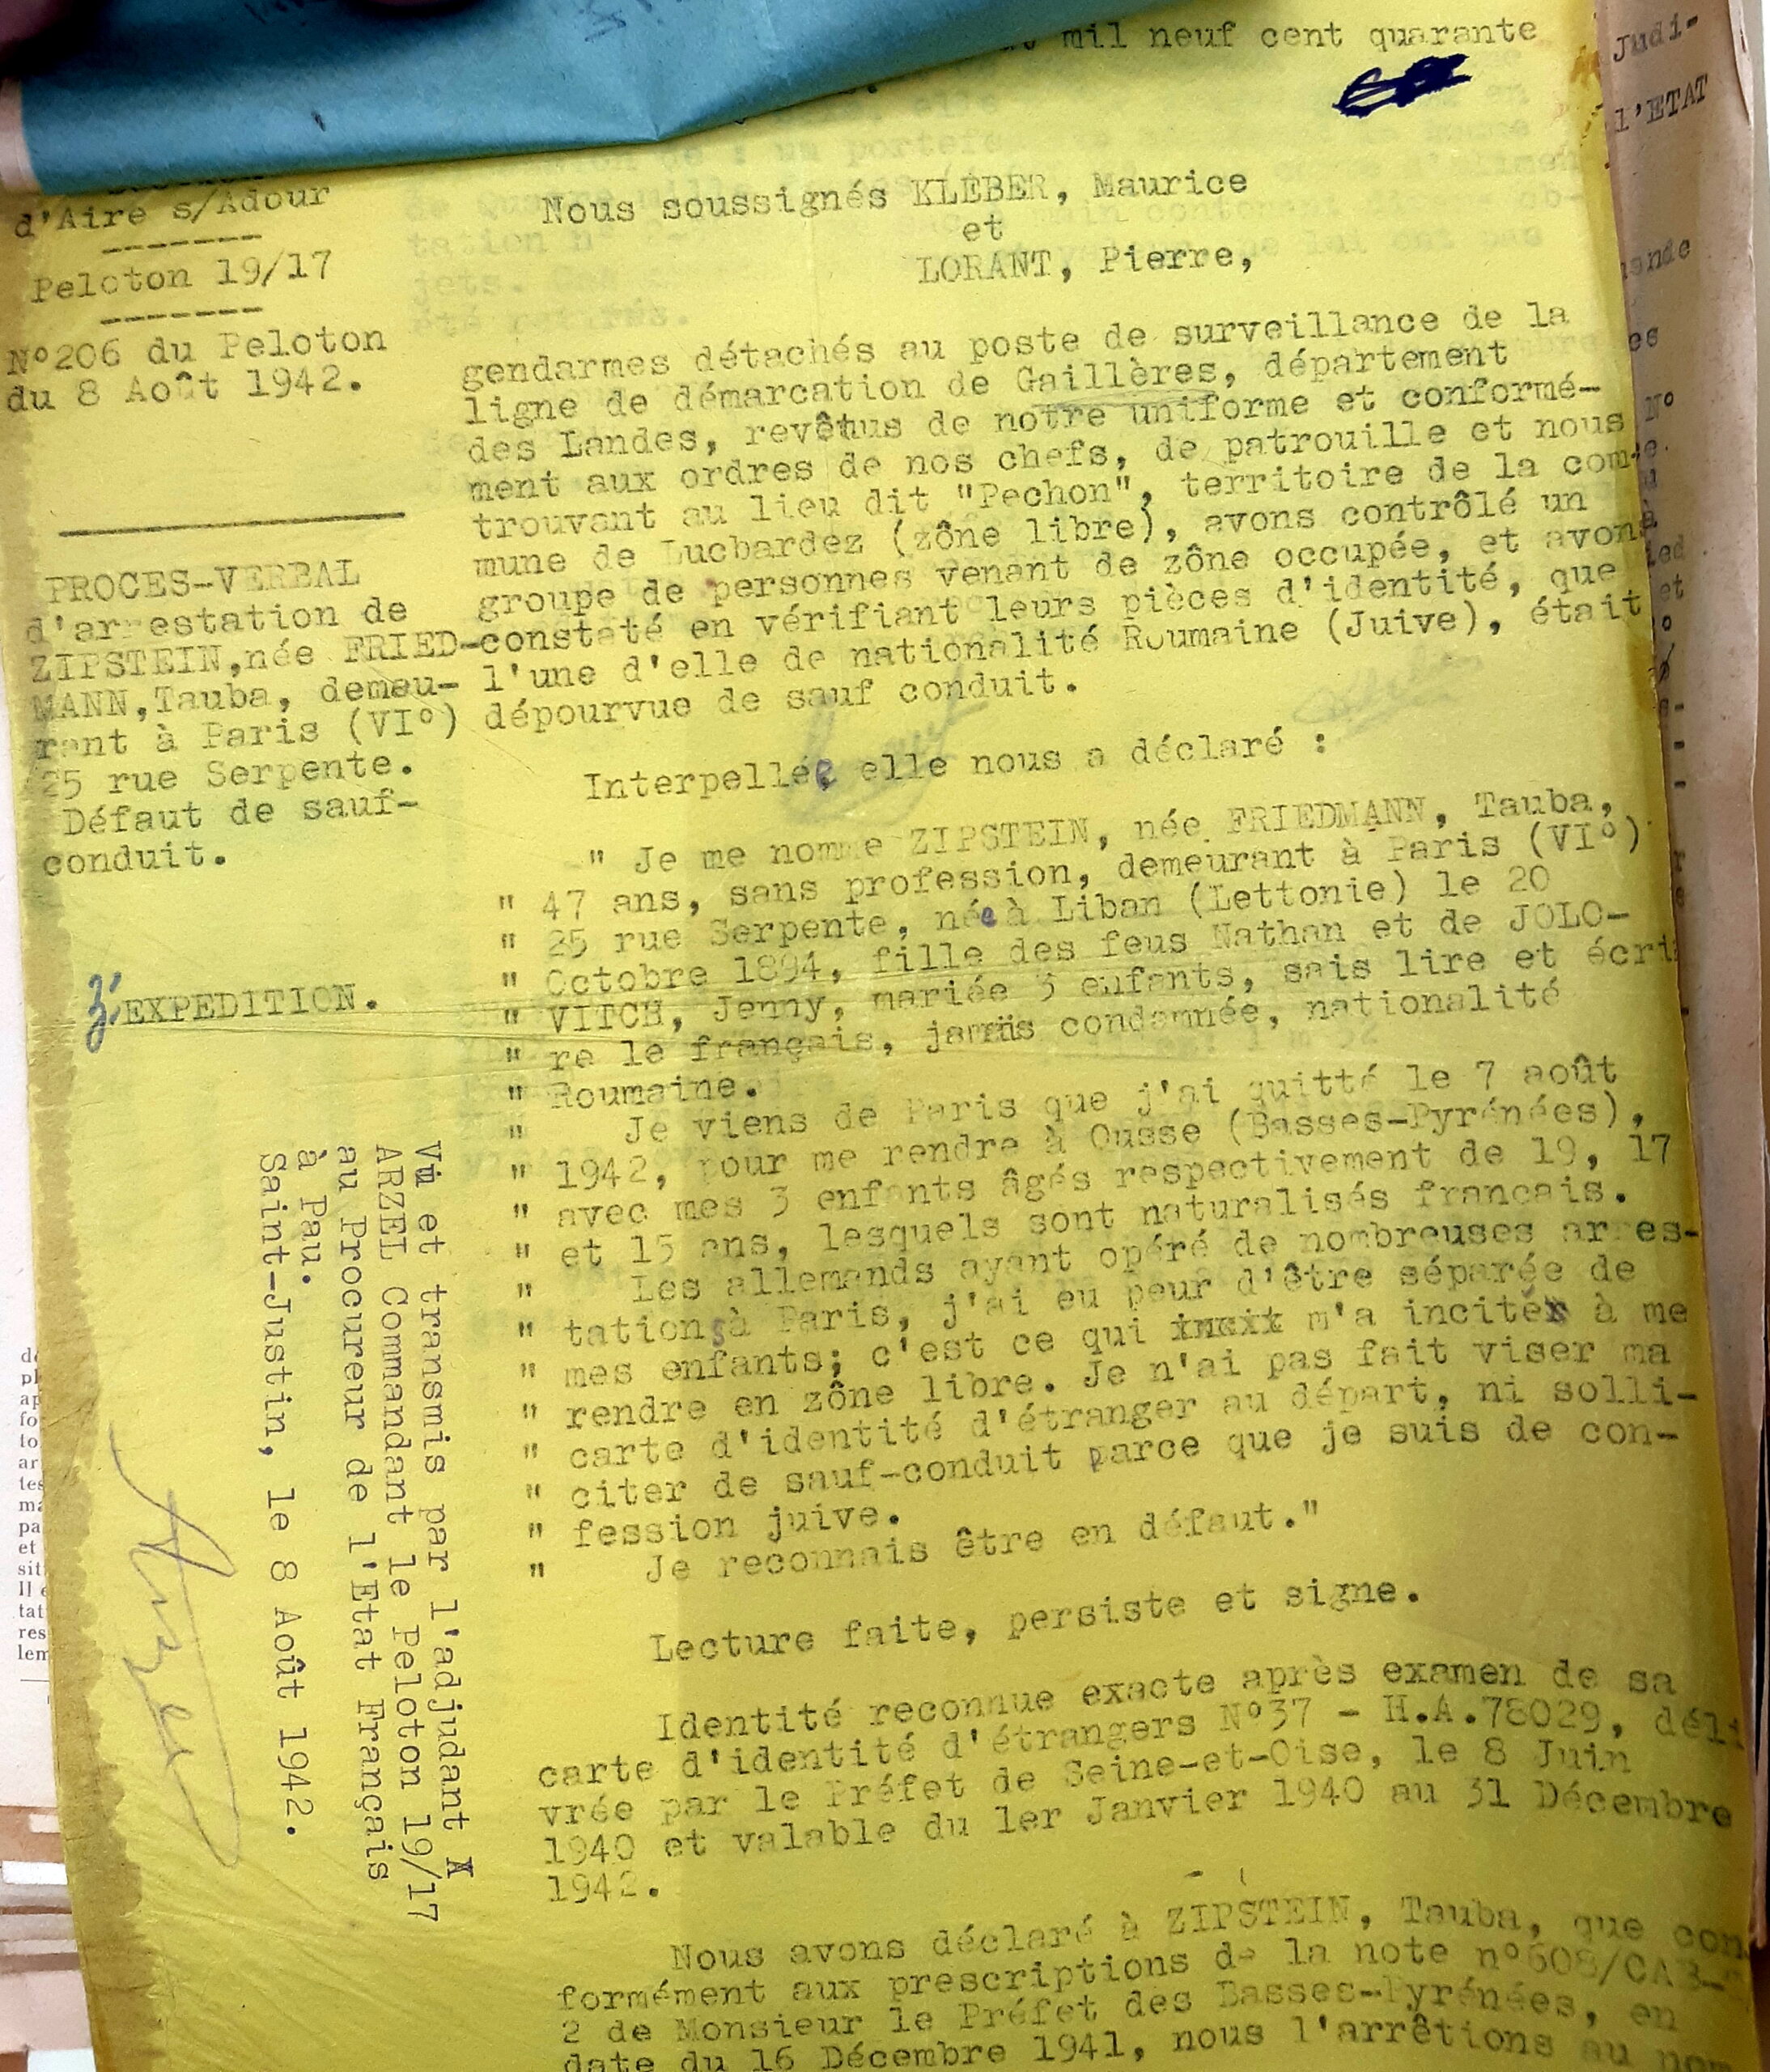 mil neuf cent quarante
d'Aire s/Adour
Peloton 19/17
N°206 du Peloton
du 8 Août 1942.
PROCES-VERBAL
d'arrestation de
ZIPSTEIN,née FRIED-
MANN,Tauba, demeu-
rant à Paris (VI°)
25 rue Serpente.
Défaut de sauf-
conduit.
EXPEDITION.
Nous soussignés KLEBER, Maurice
et
LORANT, Pierre,
gendarmes détachés au poste de surveillance de la
ligne de démarcation de Gaillères, département
des Landes, revêtus de notre uniforme et conformé-
ment aux ordres de nos chefs, de patrouille et nous
trouvant au lieu dit "Pechon", territoire de la com-
mune de Lucbardez (zône libre), avons contrôlé un
groupe de personnes venant de zône occupée, et avons
constaté en vérifiant leurs pièces d'identité, que
l'une d'elle de nationalité Roumaine (Juive), était
dépourvue de sauf conduit.
Interpellée elle nous a déclaré :
" Je me nomme ZIPSTEIN, née FRIEDMANN, Tauba,
" 47 ans, sans profession, demeurant à Paris (VI°)
" 25 rue Serpente, née à Liban (Lettonie) le 20
" Octobre 1894, fille des feus Nathan et de JOLO-
" VITCH, Jenny, mariée 3 enfants, sais lire et écri
" re le français, jamais condamnée, nationalité
" Roumaine.
" Je viens de Paris que j'ai quitté le 7 août
" 1942, pour me rendre à Ousse (Basses-Pyrénées),
" avec mes 3 enfants âgés respectivement de 19, 17
" et 15 ans, lesquels sont naturalisés francais.
" Les allemands ayant opéré de nombreuses arres-
" tations à Paris, j'ai eu peur d'être séparée de
" mes enfants; c'est ce qui m'a incité à me
" rendre en zône libre. Je n'ai pas fait viser ma
" carte d'identité d'étranger au départ, ni solli-
" citer de sauf-conduit parce que je suis de con-
" fession juive.
" Je reconnais être en défaut."
Lecture faite, persiste et signe.
Identité reconnue exacte après examen de sa
carte d'identité d'étrangers N°37 - H.A.78029, déli
vrée par le Préfet de Seine-et-Oise, le 8 Juin
1940 et valable du 1er Janvier 1940 au 31 Décembre
1942.
Nous avons déclaré à ZIPSTEIN, Tauba, que con
formément aux prescriptions de la note n°608/CAB-
2 de Monsieur le Préfet des Basses-Pyrénées, en
date du 16 Décembre 1941, nous l'arrêtions au
Vu et transmis par l'adjudant
ARZEL Commandant le Peloton 19/17
au Procureur de l'Etat Français
à Pau.
Saint-Justin, le 8 Août 1942.
Arzel
Judi-
l'ETAT